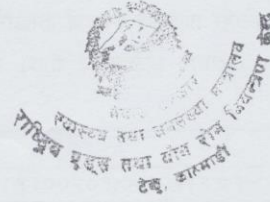 नेपाल सरकार
स्वास्थ्य तथा जनसंख्या मन्त्रालय
राष्ट्रिय एड्स तथा यौन रोग नियन्त्रण केन्द्र
टेकु, काठमाडौं